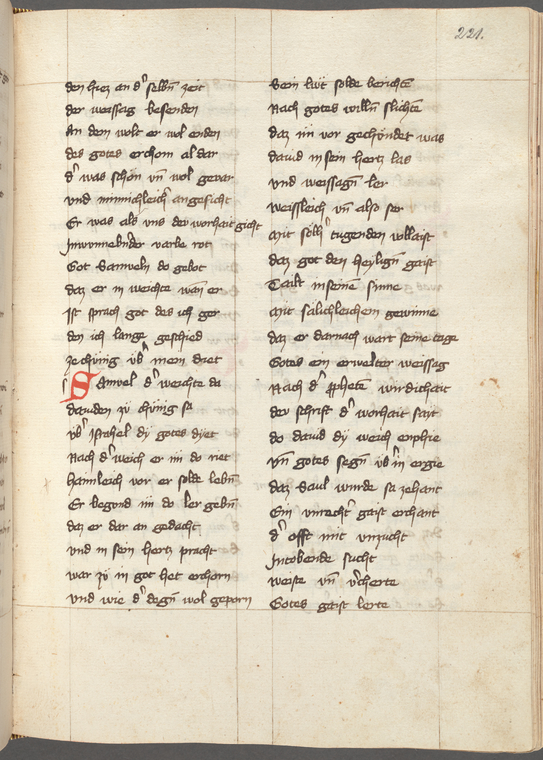 221.
den hiez an d' selbn zeit
der weissag besenden
An dem wolt er wol enden
des gotes erchorn al dar
d' was schon vn wol gevar
vnd minnichleich angesicht
Er was als vns der worhait gicht
Jn
varbe rot
Got Samveln do gebot
daz er in weichte wan er
Jst sprach got des ich ger
den ich lange geschied
ze chünig vb' mein diet
Samvel d' weichte da
dauiden zv chünig sa
vb' Jsrahel dy gotes dyet
Nach d' weich er im do riet
haimleich vor er solde lebn
Er begond im do ler gebn
daz er dar an gedacht
vnd in sein hertz pracht
war zv in got het erchorn
vnd wie d' degn wol geporn
Sein lwt solde berichte
Nach gotes willn slichte
daz im vor gechündet was
dauid in sein hertz las
vnd weissagn ler
weissleich vn also ser
Mit solh' tugenden vollaist
daz got den heylign gaist
Tailt in seine sinne
Mit sälichleichem gewinne
daz er darnach wart seine tage
Gotes ein erwelter weissag
Nach d' pphete wirdichait
der schrift d' worhait sait
do dauid dy weich enphie
vn gotes segn vb' in ergie
daz Saul wurde sa zehant
Ein vnrecht' gaist erchant
d' offt mit vnzucht
Jn tobende sucht
weiste vn v'cherte
Gotes gaist lerte